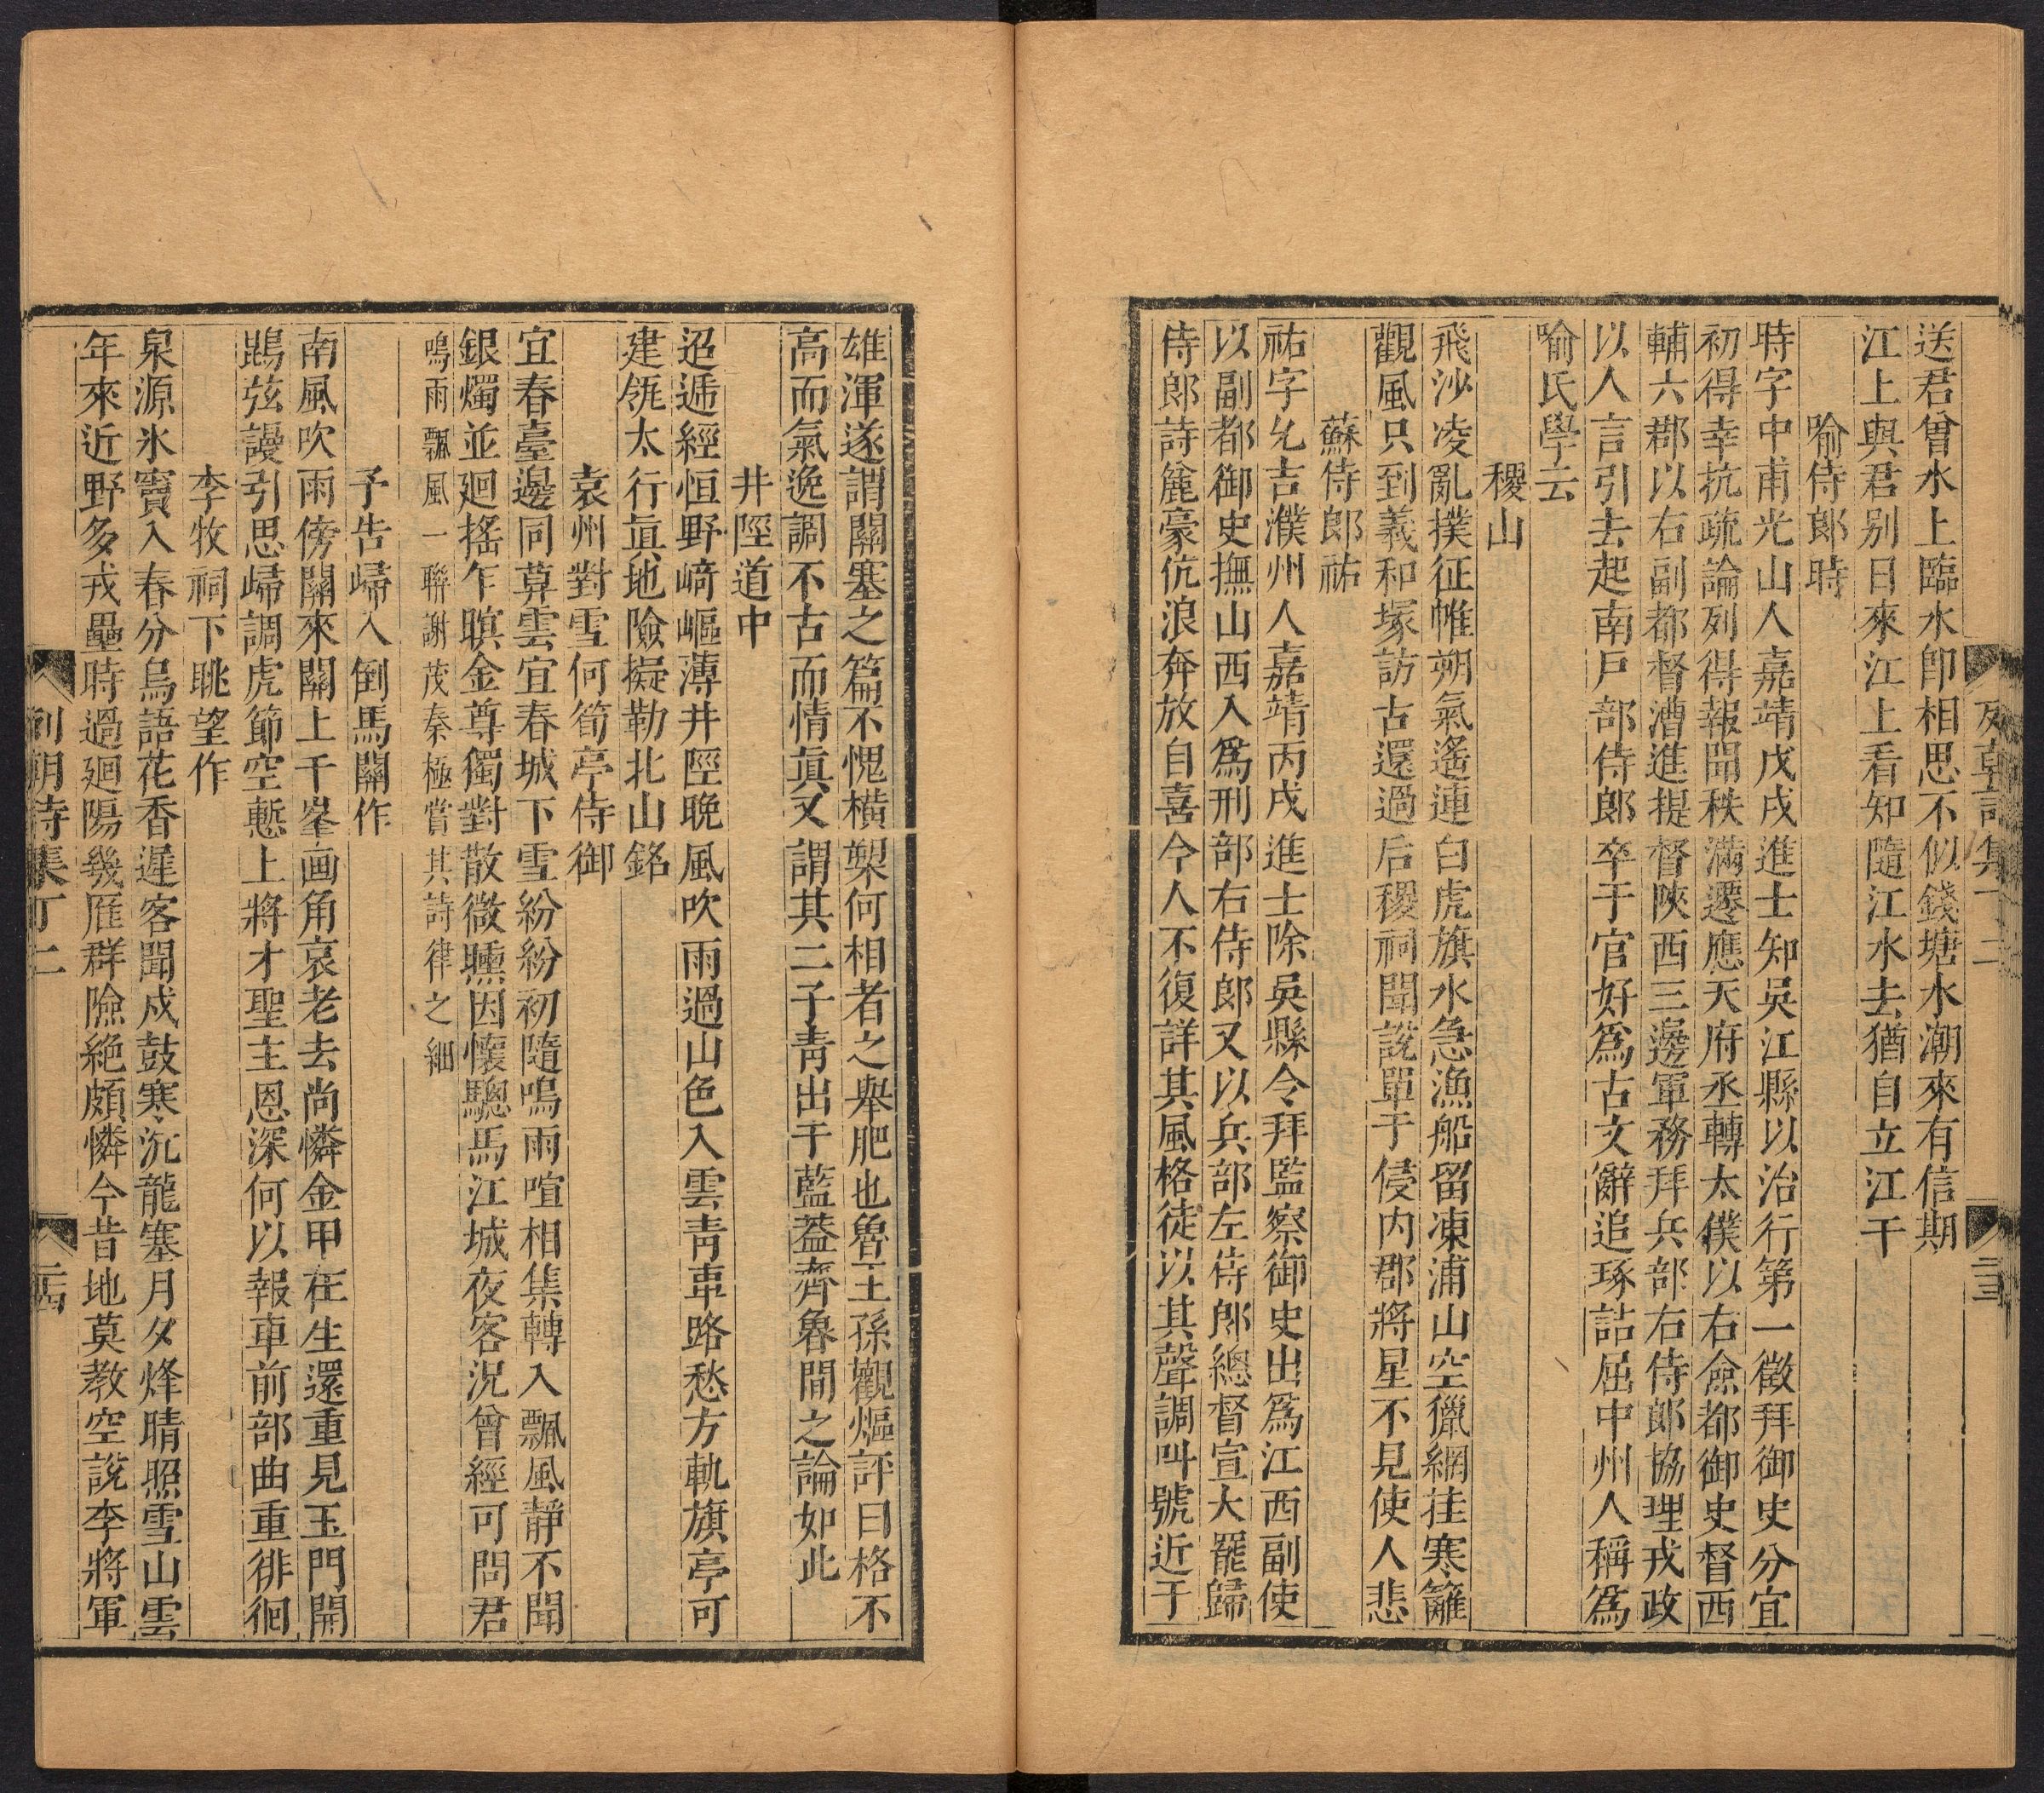 送君曾水上臨水卽相思不似錢塘水潮來有信期
江上與君别日來江上看知隨江水去猶自立江干
喻侍郎時
時字中甫光山人嘉靖戊戌進士知吳江縣以治行第一徵拜御史分宜
初得幸抗疏論列得報聞秩滿遷應天府丞轉太僕以右僉都御史督西
輔六郡以右副都督漕進提督陝西三邊軍務拜兵部右侍郎協理戎政
以人言引去起南戸部侍郎卒于官好爲古文辭追琢詰屈中州人稱爲
喻氏學云
稷山
飛沙凌亂撲征帷朔氣遙連白虎旗水急漁船留凍浦山空獵網挂寒籬
觀風只到義和塚訪古還過后稷祠聞說單于侵内郡將星不見使人悲
蘇侍郎祐
祐字允吉濮州人嘉靖丙戌進士除吳縣令拜監察御史出爲江西副使
以副都御史撫山西入爲刑部右侍郎又以兵部左侍郎總督宣大罷歸
侍郎詩麄豪伉浪奔放自喜今人不復詳其風格徒以其聲調叫號近于
列朝詩集丁二
雄渾遂謂關塞之篇不愧橫槊何相者之舉肥也魯王孫觀熰評曰格不
高而氣逸調不古而情眞又謂其二子靑出于藍葢齊魯間之論如此
井陘道中
迢遞經恒野﨑嶇薄井陘晩風吹雨過山色入雲靑車路愁方軌旗亭可
建瓴太行眞地險擬勒北山銘
袁州對雪何筍亭侍御
宜春臺邊同算雲宜春城下雪紛紛初隨鳴雨喧相集轉入飄風靜不聞
銀燭並廻搖乍暝金尊獨對散微醺因懷驄馬江城夜客況曾經可問君
鳴雨飄風一聯謝茂秦極嘗其詩律之細
予告歸入倒馬關作
南風吹雨傍關來關上千峯画角哀老去尚憐金甲在生還重見玉門開
鵾弦謾引思歸調虎節空慙上將才聖主恩深何以報車前部曲重徘徊
李牧祠下眺望作
泉源氷竇入春分鳥語花香遲客聞戍鼓寒沉龍塞月夕烽晴照雪山雲
年來近野多戎壘時過廻陽幾雁群險絶頗憐今昔地莫教空說李將軍
列朝詩集丁二